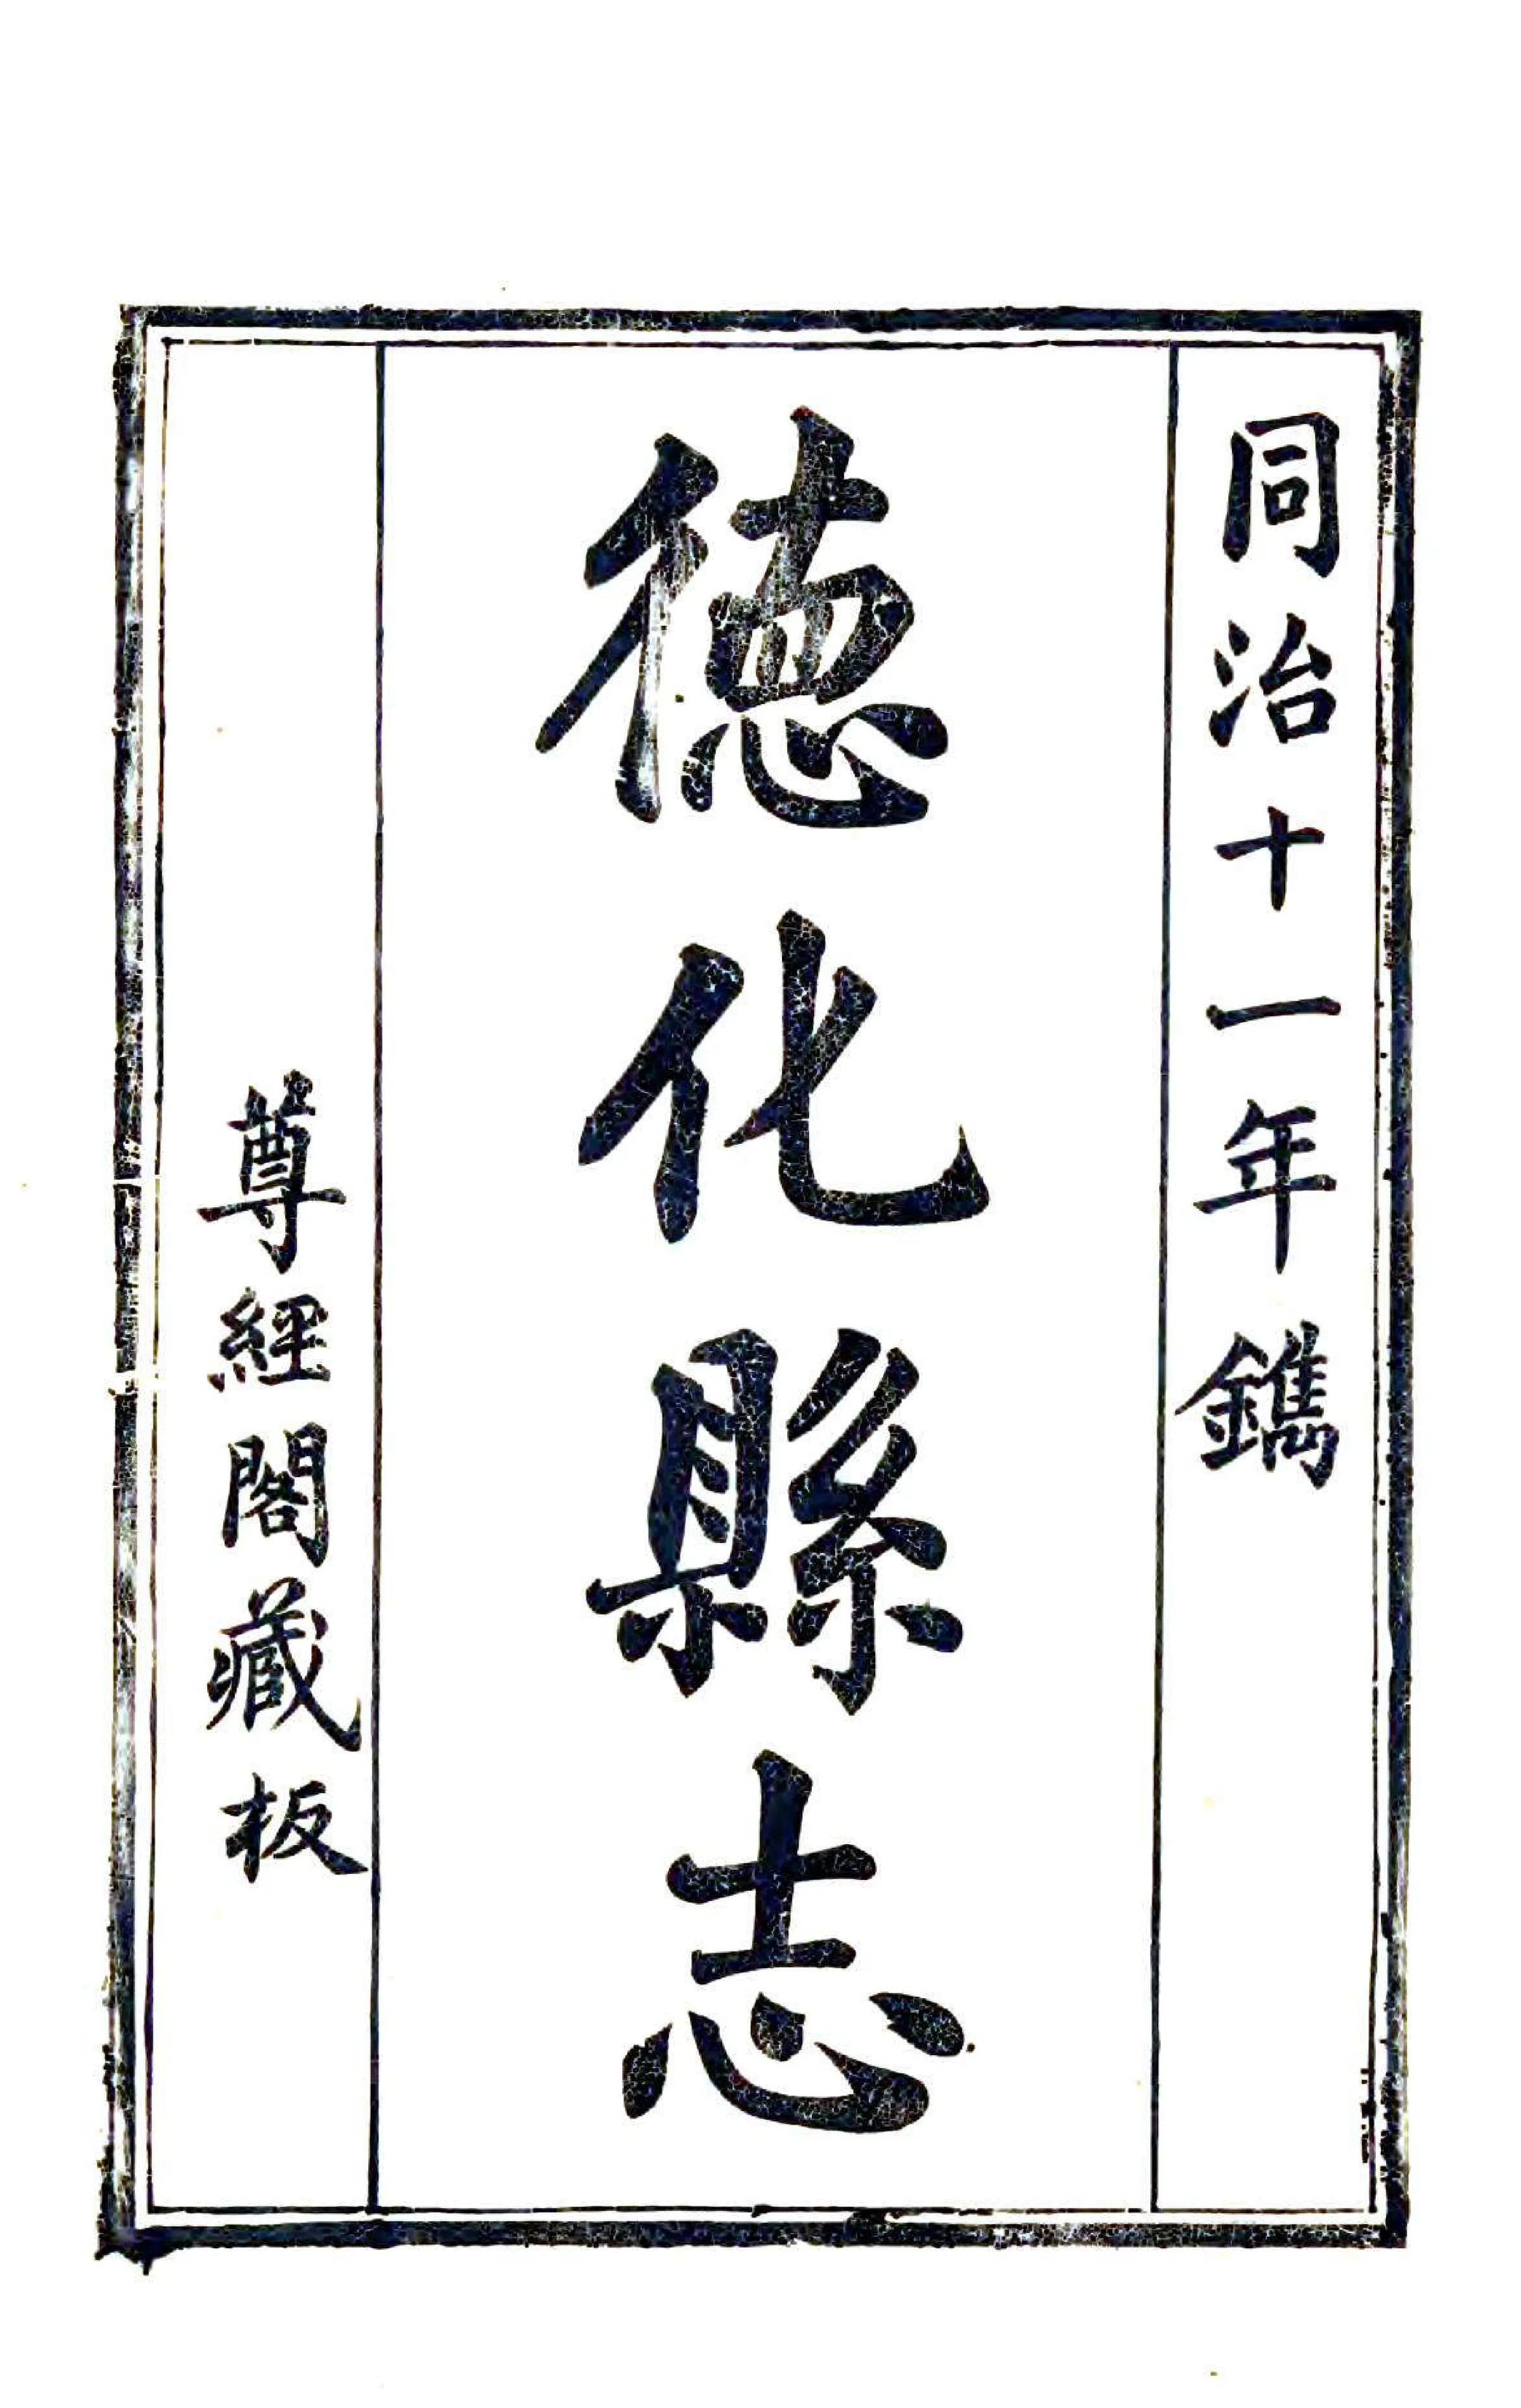 同治十一年鐫
徳化縣志
尊經閣藏板